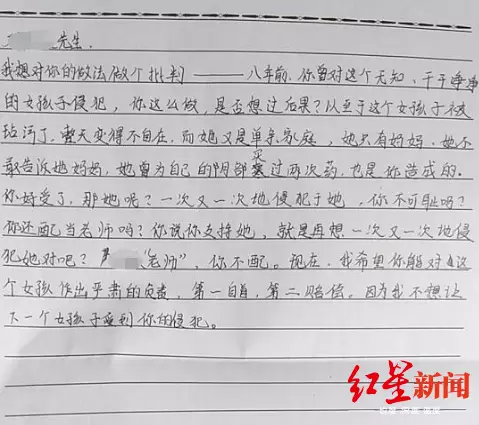 先生.
我想对你的做法做个批判——八年前,你曾对这个无知、干干净净
的女孩子侵犯,你这么做,是否想过后果?以至于这个女孩子被
玷污了,整天变得不自在,而她又是单亲家庭,她只有妈妈,她不
敢告诉她妈妈,她曾为自己的阴部买过两次药,也是你造成的。
你好受了,那她呢?一次又一次地侵犯于她,你不可耻吗?
你还配当老师吗?你说你支持她,就是再想一次又一次地侵
犯她对吧?"老师",你不配。现在,我希望你能对这
个女孩作出严肃的负责,第一自首,第二赔偿。因为我不想让
下一个女孩子受到你的侵犯。
红星新闻